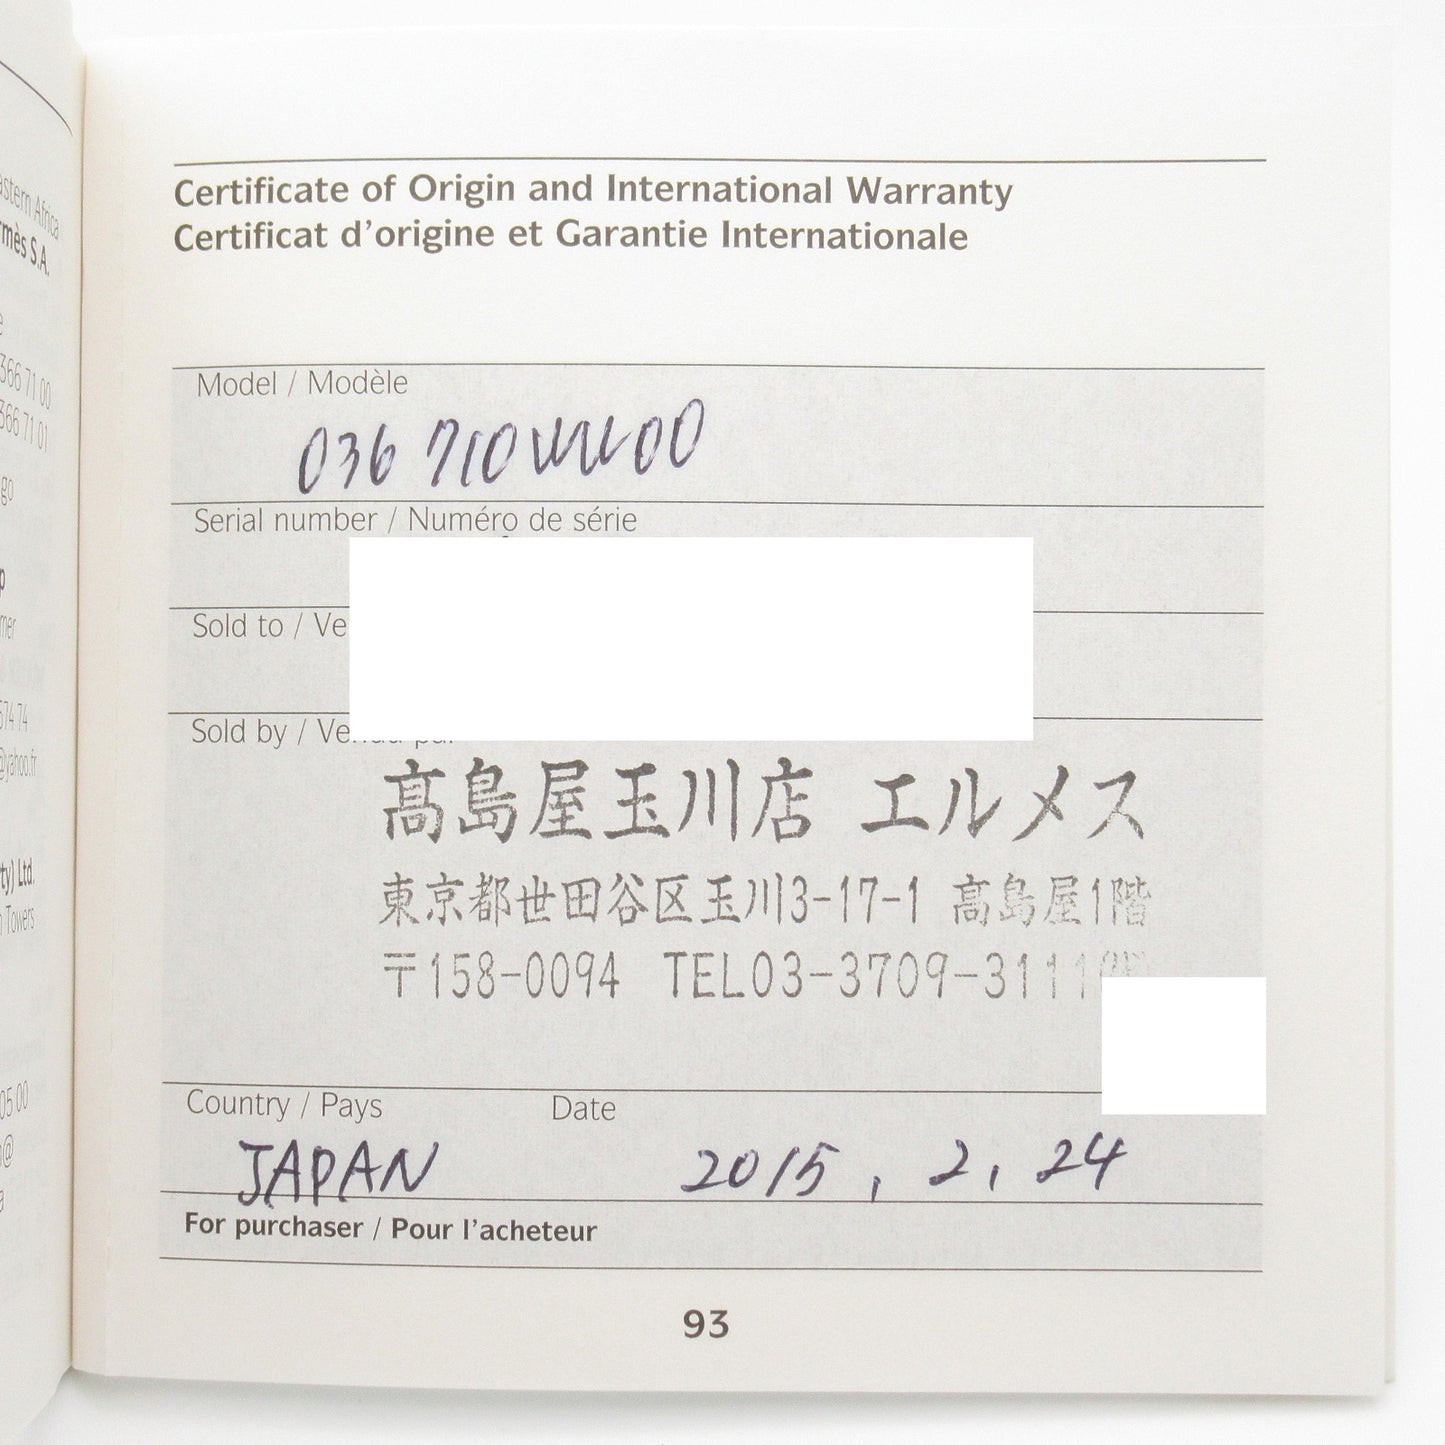 astern Africa
rmès S.A.
366 71 00
366 71 01
go
mer
574 74
@yahoo.fr
ty) Ltd.
Towers
05 00
Certificate of Origin and International Warranty
Certificat d'origine et Garantie Internationale
Model / Modèle
036 710WW00
Serial number / Numéro de série
Sold to / Ve
Sold by / Vendu par
髙島屋玉川店 エルメス
東京都世田谷区玉川3-17-1 髙島屋1階
〒158-0094 TEL03-3709-3111
Country / Pays Date
JAPAN 2015, 2, 24
For purchaser / Pour l'acheteur
93